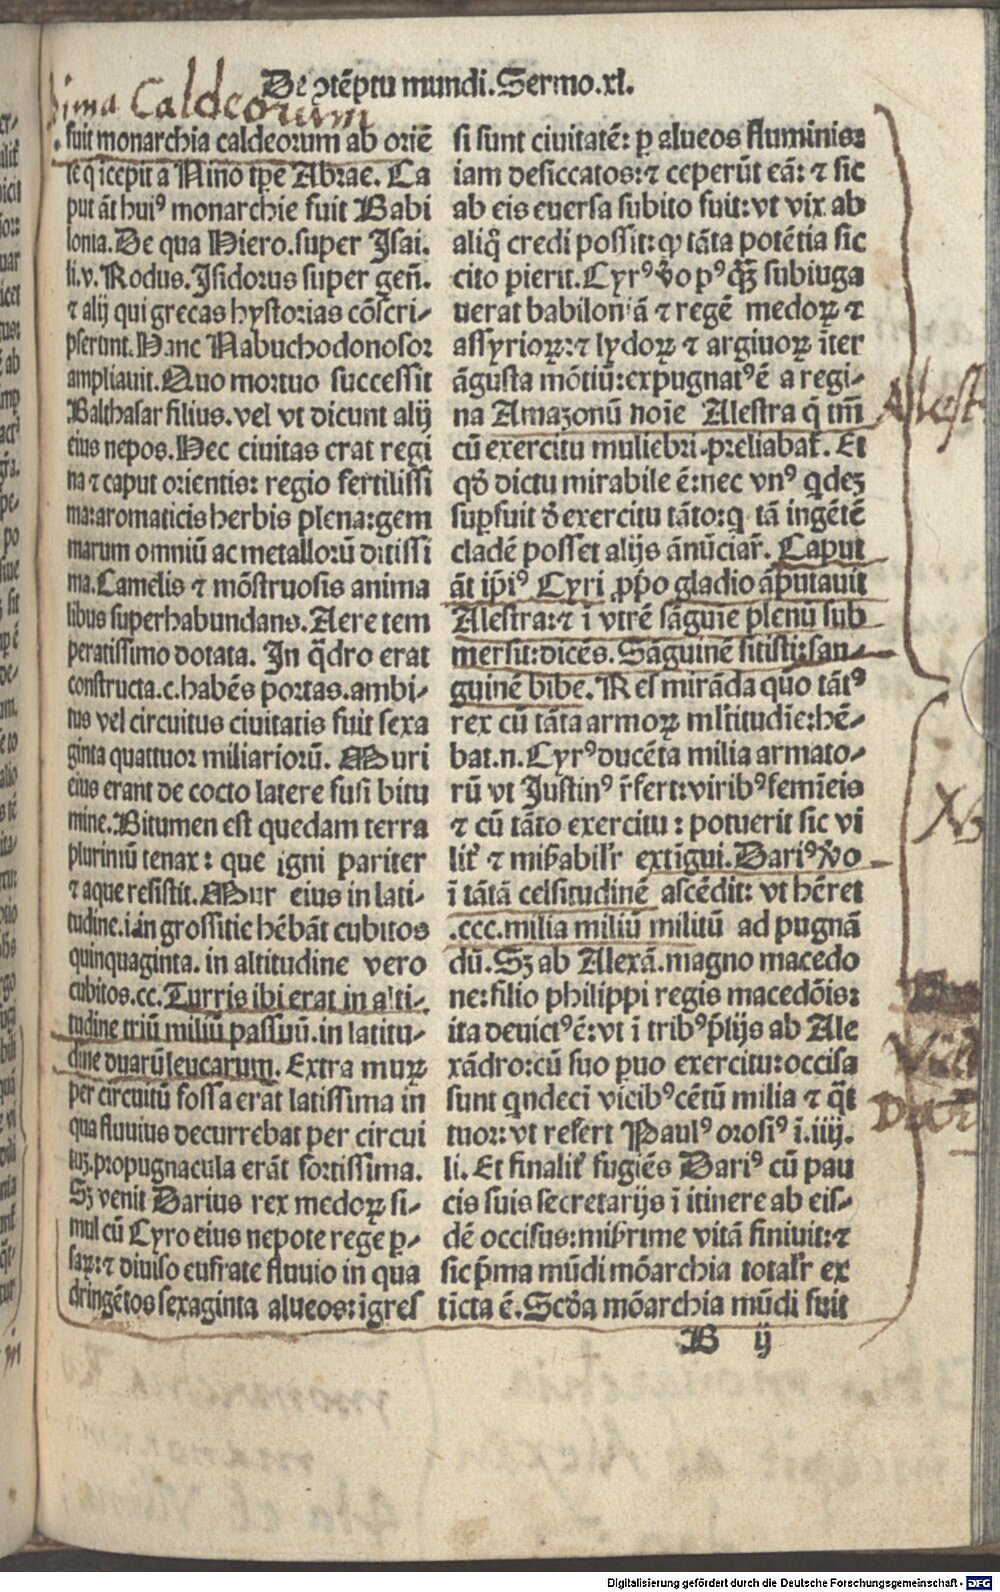 De ↄtēptu mundi. Sermo. xl.
ima Caldeorum
fuit monarchia caldeorum ab oriē
te q̄ īcepit a Nino tp̄e Abrae. Ca
put āt huiꝰ monarchie fuit Babi
lonia. De qua Hiero. super Isai.
li. v. Rodus. Isidorus super gen̄.
⁊ alij qui grecas hystorias cōscri-
pserunt. Hanc Nabuchodonosor
ampliauit. Quo mortuo successit
Balthasar filius. vel vt dicunt alij
eius nepos. Hec ciuitas erat regi
na ⁊ caput orientis: regio fertilissi
ma: aromaticis herbis plena: gem
marum omniū ac metallorū ditissi
ma. Camelis ⁊ mōstruosis anima
libus superhabundans. Aere tem
peratissimo dotata. In q̄dro erat
constructa. c. habēs portas. ambi-
tus vel circuitus ciuitatis fuit sexa
ginta quattuor miliariorū. Muri
eius erant de cocto latere fusi bitu
mine. Bitumen est quedam terra
plurimū tenax: que igni pariter
⁊ aque resistit. Mur eius in lati-
tudine. i. in grossitie hēbāt cubitos
quinquaginta. in altitudine vero
cubitos. cc. Turris ibi erat in alti-
tudine triū miliū passuū. in latitu-
dine duarū leucarum. Extra muꝝ
per circuitū fossa erat latissima in
qua fluuius decurrebat per circui
tuꝫ. propugnacula erāt fortissima.
Sꝫ venit Darius rex medoꝝ si-
mul cū Cyro eius nepote rege ꝑ-
saꝝ: ⁊ diuiso eufrate fluuio in qua
dringētos sexaginta alueos: īgres
si sunt ciuitatē: ꝑ alueos fluminis:
iam desiccatos: ⁊ ceperūt eā: ⁊ sic
ab eis euersa subito fuit: vt vix ab
aliq̄ credi possit: ꝙ tāta potētia sic
cito pierit. Cyrꝰ v̊o pꝰ q̄ꝫ subiuga
uerat babilon¹ā ⁊ regē medoꝝ ⁊
assyrioꝝ: ⁊ lydoꝝ ⁊ argiuoꝝ īter
āgusta mōtiū: expugnatꝰ ē a regi-
na Amazonū noīe Alestra q̄ tm̄
cū exercitu muliebri preliabat̄. Et
qd̓ dictu mirabile ē: nec vnꝰ qdeꝫ
suꝑfuit d̓ exercitu tāto: q tā ingētē
cladē posset alijs ānūciar̄. Caput
āt ip̄iꝰ Cyri ꝓp̄o gladio āputauit
Alestra: ⁊ ī vtrē sāguīe plenū sub
mersit: dicēs. Sāguinē sitisti: san-
guinē bibe. Res mirāda quo tātꝰ
rex cū tāta armoꝝ ml̄titudīe: hē-
bat. n. Cyrꝰ ducēta milia armato-
rū vt Justinꝰ r̄fert: viribꝰ femīeis
⁊ cū tāto exercitu: potuerit sic vi
lit̄ ⁊ mir̄abilr̄ extīgui. Dariꝰ v̊o
ī tātā celsitudinē ascēdit: vt hēret
.ccc. milia miliū militū ad pugnā
dū. Sꝫ ab Alexā. magno macedo
ne: filio philippi regis macedōis:
ita deuictꝰ ē: vt ī tribꝰ p̄lijs ab Ale
xādro: cū suo puo exercitu: occisa
sunt qndeci vicibꝰ cētū milia ⁊ q̄t
tuor: vt refert Paulꝰ orosiꝰ ī. iiij.
li. Et finalit̄ fugiēs Dariꝰ cū pau
cis suis secretarijs ī itinere ab eis-
dē occisus: mis̄rime vitā finiuit: ⁊
sic p̄ma mūdi mōarchia totalr̄ ex
ticta ē. Scd̓a mōarchia mūdi fuit
B ij
Alest
Nb
Dar
Digitalisierung gefördert durch die Deutsche Forschungsgemeinschaft - DFG